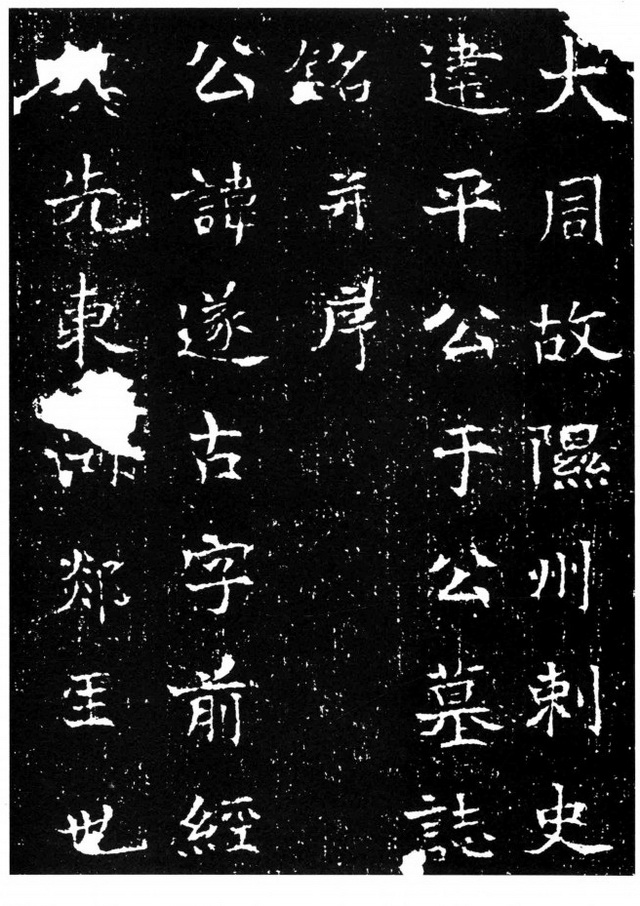 大周故隰州刺史
建平公于公墓誌
銘并序
公諱遂古字前經
其先東海郯里世